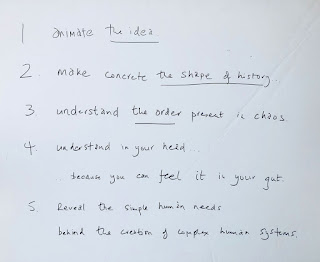 1 animate the idea
2. make concrete the shape of history.
3. understand the order present in chaos.
4. understand in your head...
..because you can feel it in your gut.
5. Reveal the simple human needs
behind the creation of complex human systems.